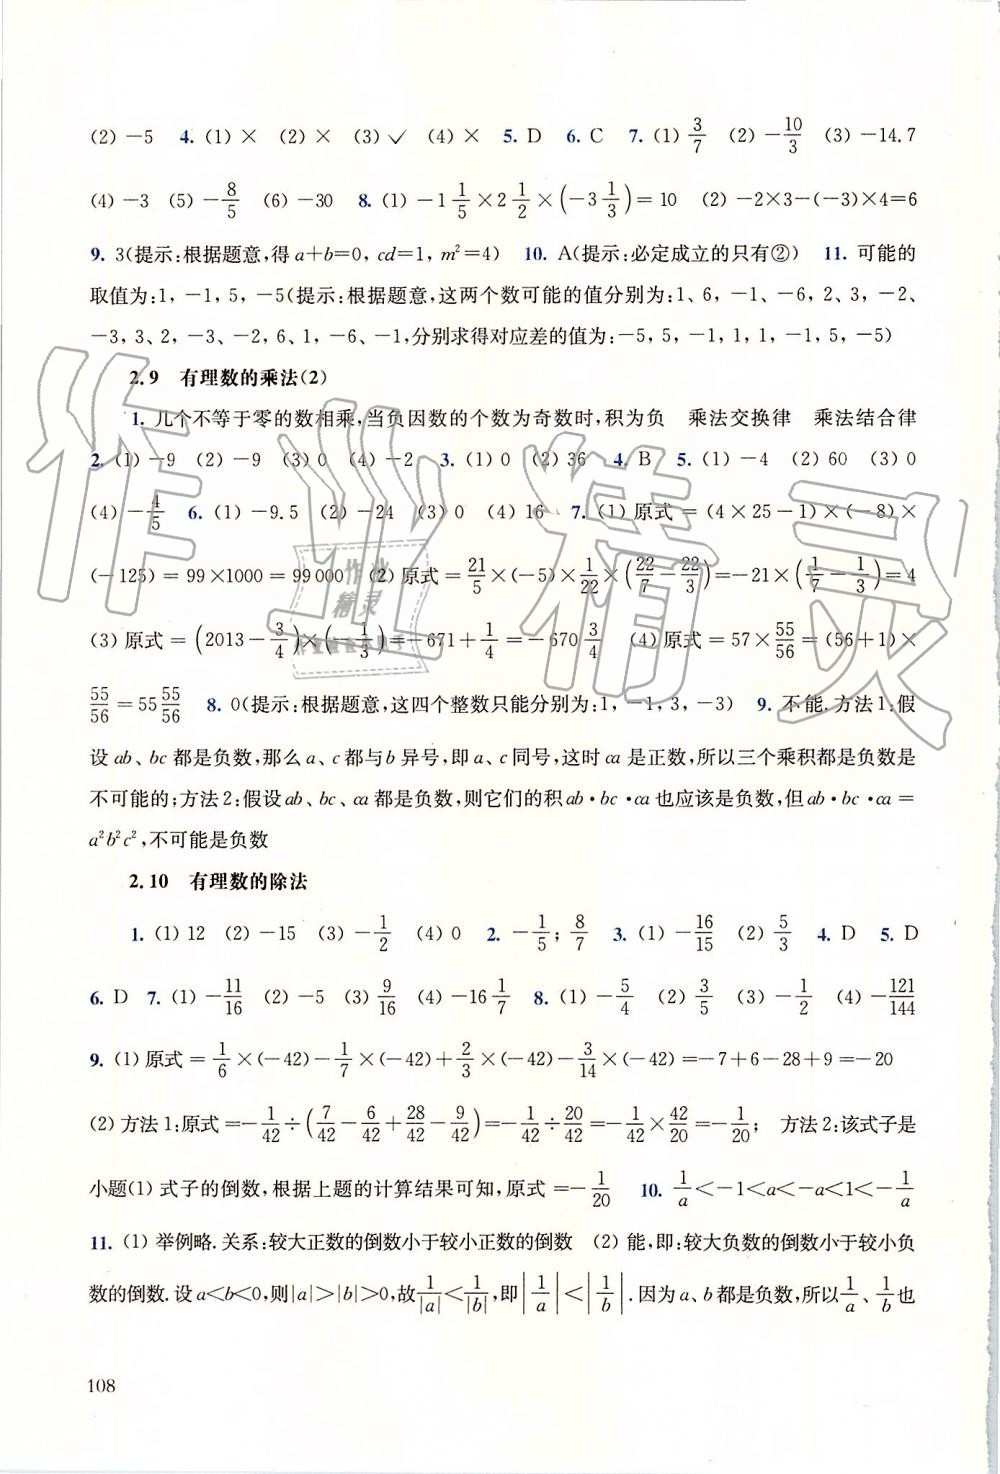 (2) －5 4. (1) × (2) × (3) ✓ (4) × 5. D 6. C 7. (1) 3/7 (2) －10/3 (3) －14.7
(4) －3 (5) －8/5 (6) －30 8. (1) －1 1/5 ×2 1/2 ×(－3 1/3)＝10 (2) －2×3－(－3)×4＝6
9. 3(提示:根据题意,得a＋b＝0, cd＝1, m²＝4) 10. A(提示:必定成立的只有②) 11. 可能的
取值为:1, －1, 5, －5(提示:根据题意,这两个数可能的值分别为:1、6, －1、－6, 2、3, －2、
－3, 3、2, －3、－2, 6、1, －6、－1,分别求得对应差的值为:－5, 5, －1, 1, 1, －1, 5, －5)
2.9 有理数的乘法(2)
1. 几个不等于零的数相乘,当负因数的个数为奇数时,积为负 乘法交换律 乘法结合律
2. (1) －9 (2) －9 (3) 0 (4) －2 3. (1) 0 (2) 36 4. B 5. (1) －4 (2) 60 (3) 0
(4) －4/5 6. (1) －9.5 (2) －24 (3) 0 (4) 16 7. (1) 原式＝(4×25－1)×(－8)×
(－125)＝99×1000＝99 000 (2) 原式＝21/5×(－5)×1/22×(22/7－22/3)＝－21×(1/7－1/3)＝4
(3) 原式＝(2013－3/4)×(－1/3)＝－671＋1/4＝－670 3/4 (4) 原式＝57×55/56＝(56＋1)×
55/56＝55 55/56 8. 0(提示:根据题意,这四个整数只能分别为:1, －1, 3, －3) 9. 不能. 方法1:假
设ab、bc都是负数,那么a、c都与b异号,即a、c同号,这时ca是正数,所以三个乘积都是负数是
不可能的;方法2:假设ab、bc、ca都是负数,则它们的积ab·bc·ca也应该是负数,但ab·bc·ca＝
a²b²c²,不可能是负数
2.10 有理数的除法
1. (1) 12 (2) －15 (3) －1/2 (4) 0 2. －1/5; 8/7 3. (1) －16/15 (2) 5/3 4. D 5. D
6. D 7. (1) －11/16 (2) －5 (3) 9/16 (4) －16 1/7 8. (1) －5/4 (2) 3/5 (3) －1/2 (4) －121/144
9. (1) 原式＝1/6×(－42)－1/7×(－42)＋2/3×(－42)－3/14×(－42)＝－7＋6－28＋9＝－20
(2) 方法1:原式＝－1/42÷(7/42－6/42＋28/42－9/42)＝－1/42÷20/42＝－1/42×42/20＝－1/20; 方法2:该式子是
小题(1) 式子的倒数,根据上题的计算结果可知,原式＝－1/20 10. 1/a＜－1＜a＜－a＜1＜－1/a
11. (1) 举例略. 关系:较大正数的倒数小于较小正数的倒数 (2) 能,即:较大负数的倒数小于较小负
数的倒数. 设a＜b＜0,则|a|＞|b|＞0,故1/|a|＜1/|b|,即|1/a|＜|1/b|. 因为a、b都是负数,所以1/a、1/b也
108
作业精灵
作业
精灵